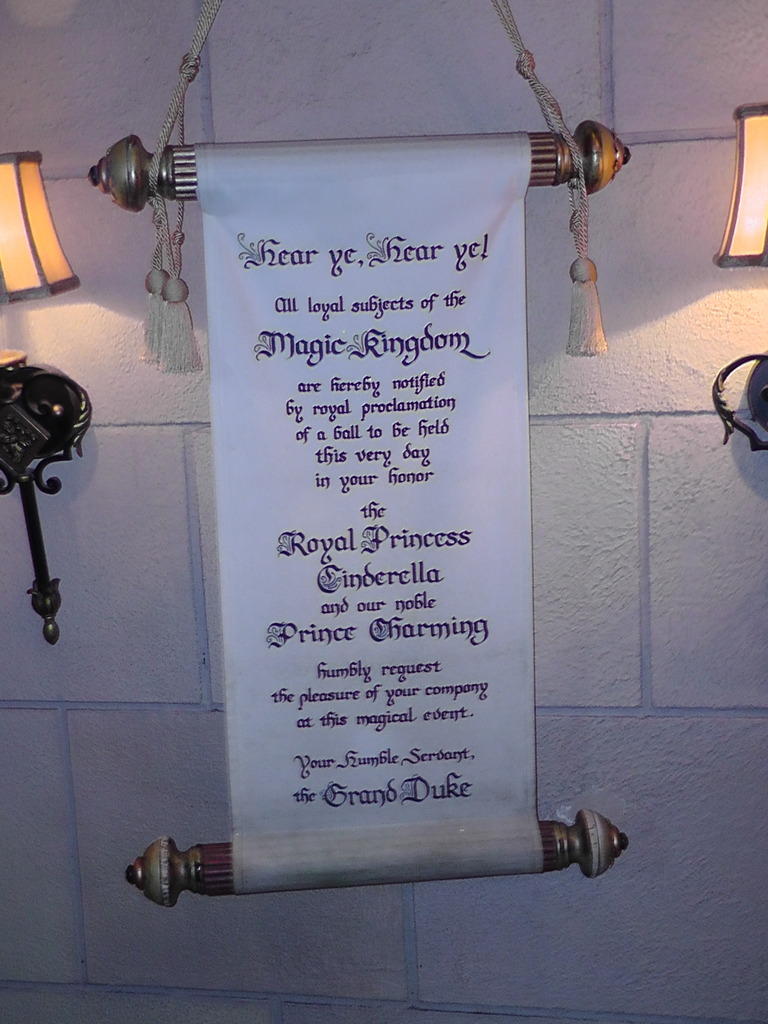 Hear ye, Hear ye!
All loyal subjects of the
Magic Kingdom
are hereby notified
by royal proclamation
of a ball to be held
this very day
in your honor
the
Royal Princess
Cinderella
and our noble
Prince Charming
humbly request
the pleasure of your company
at this magical event.
Your Humble Servant,
the Grand Duke